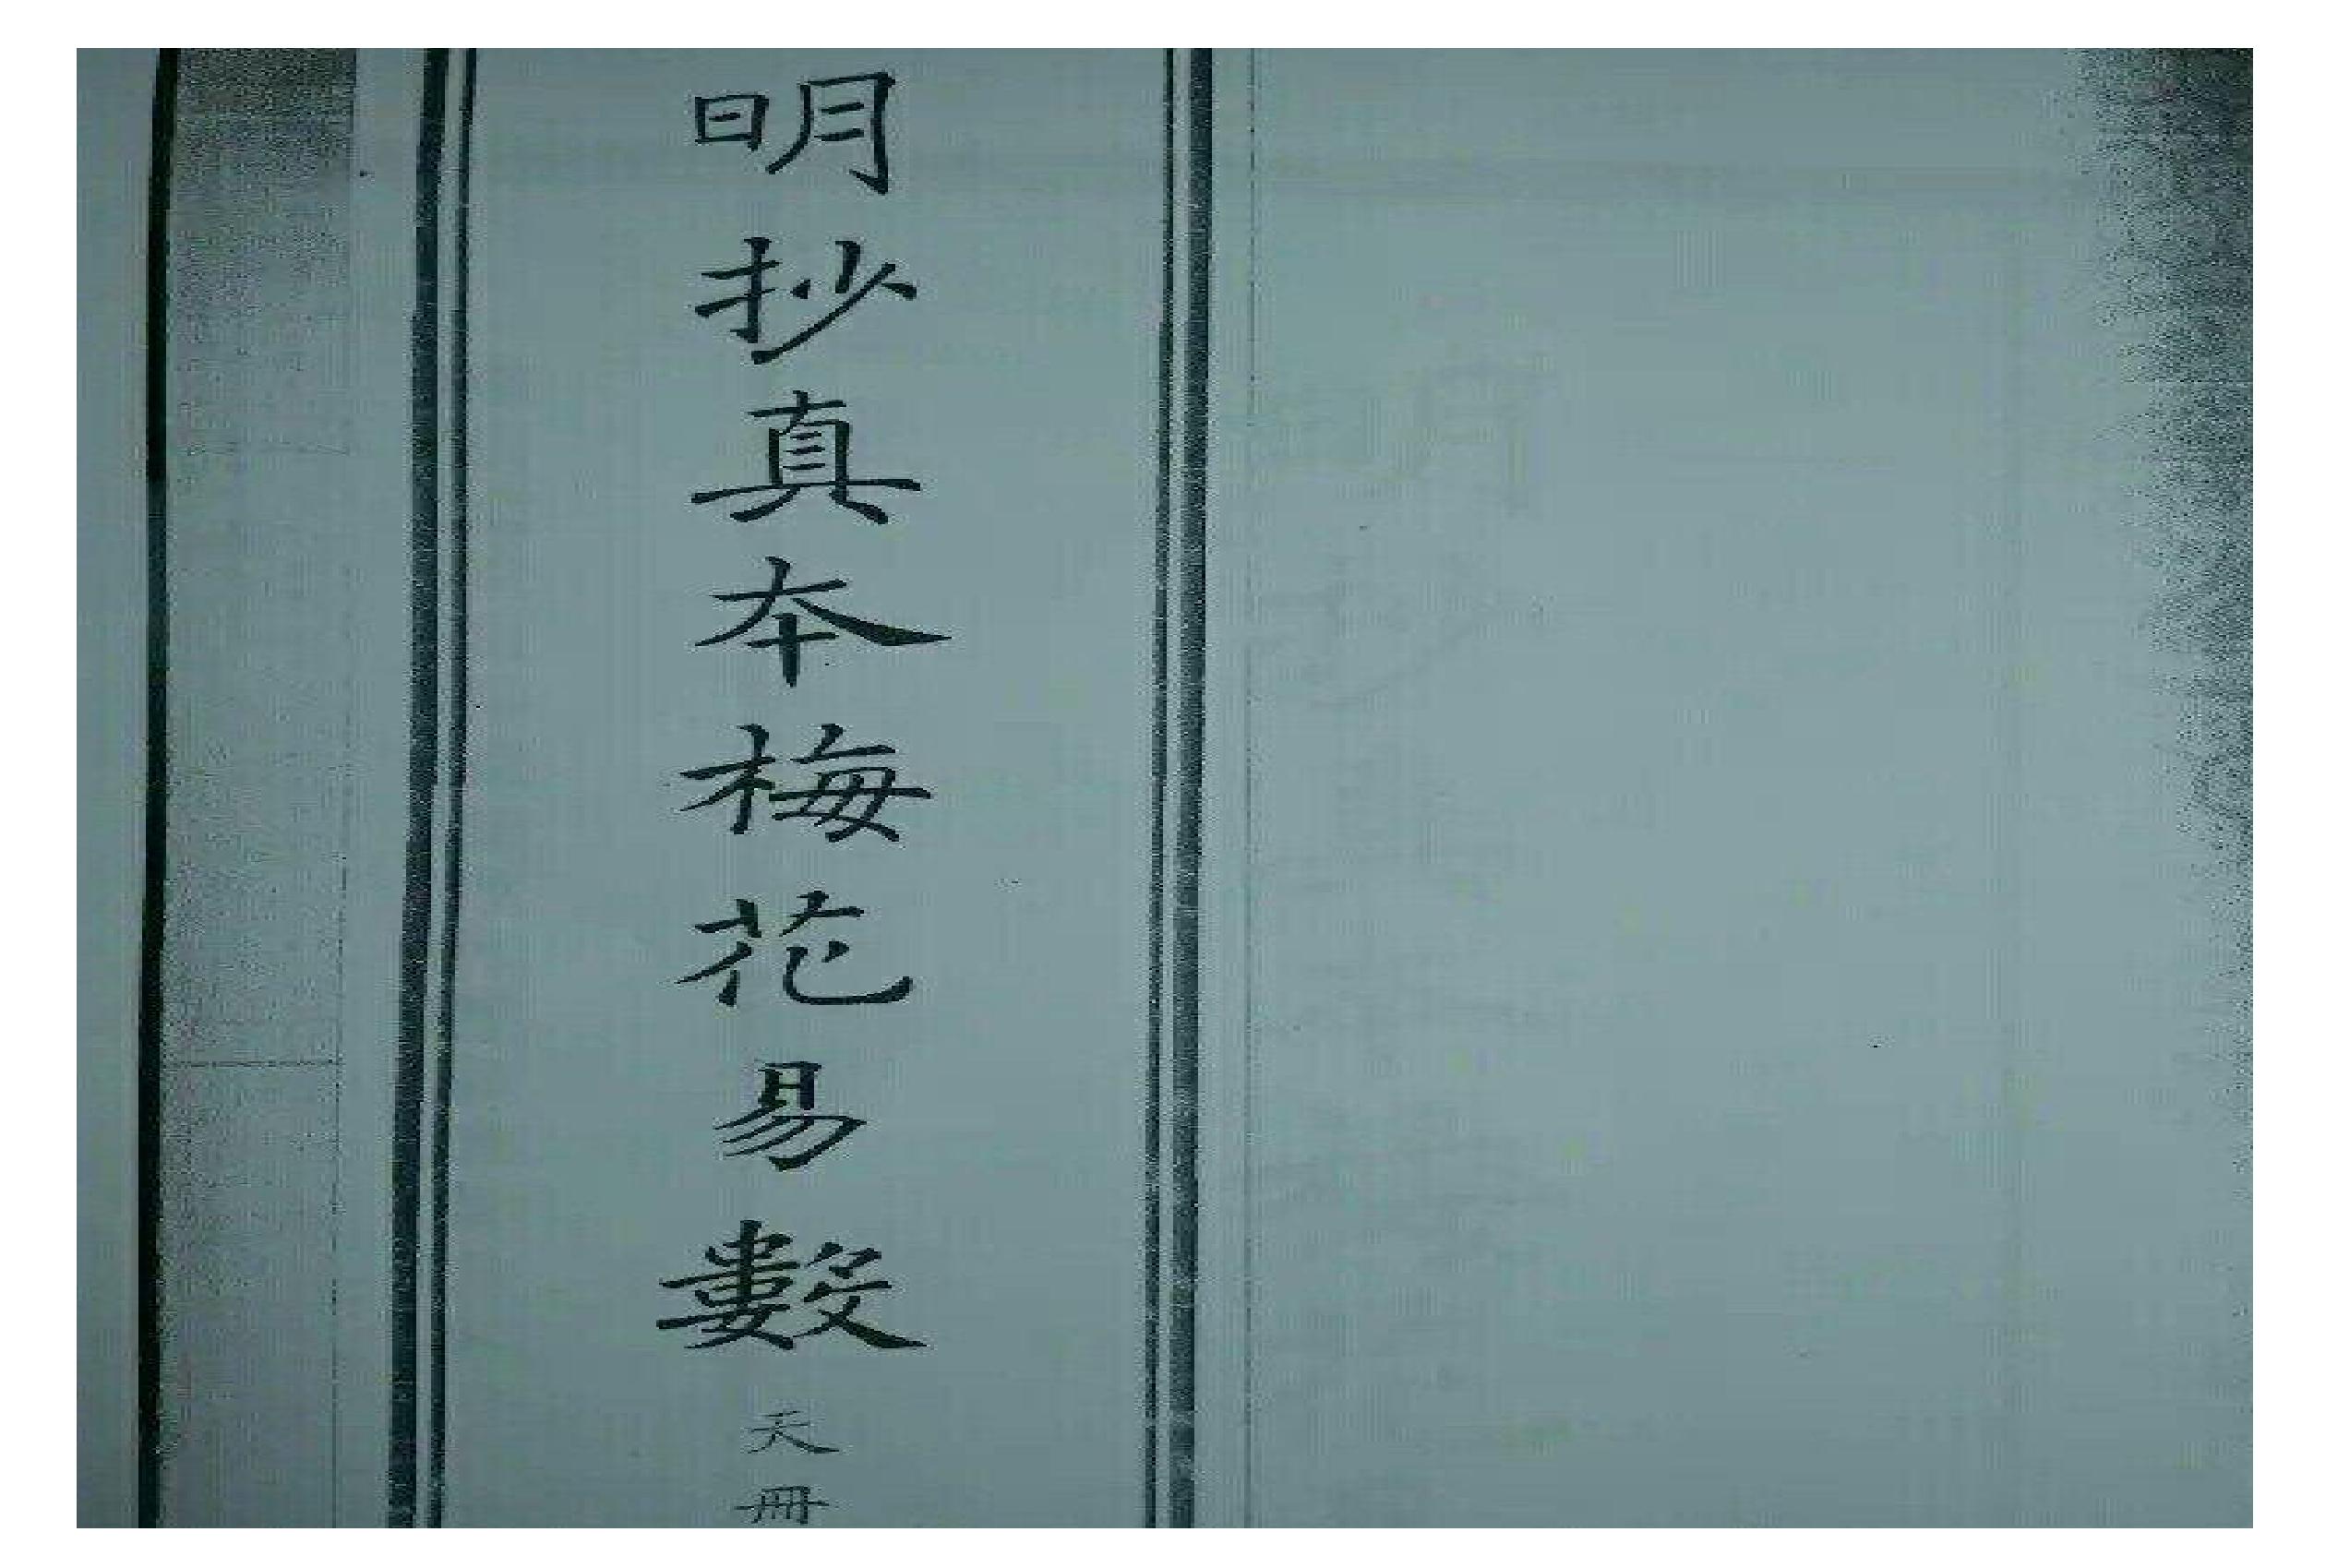 明抄真本梅花易數
天冊